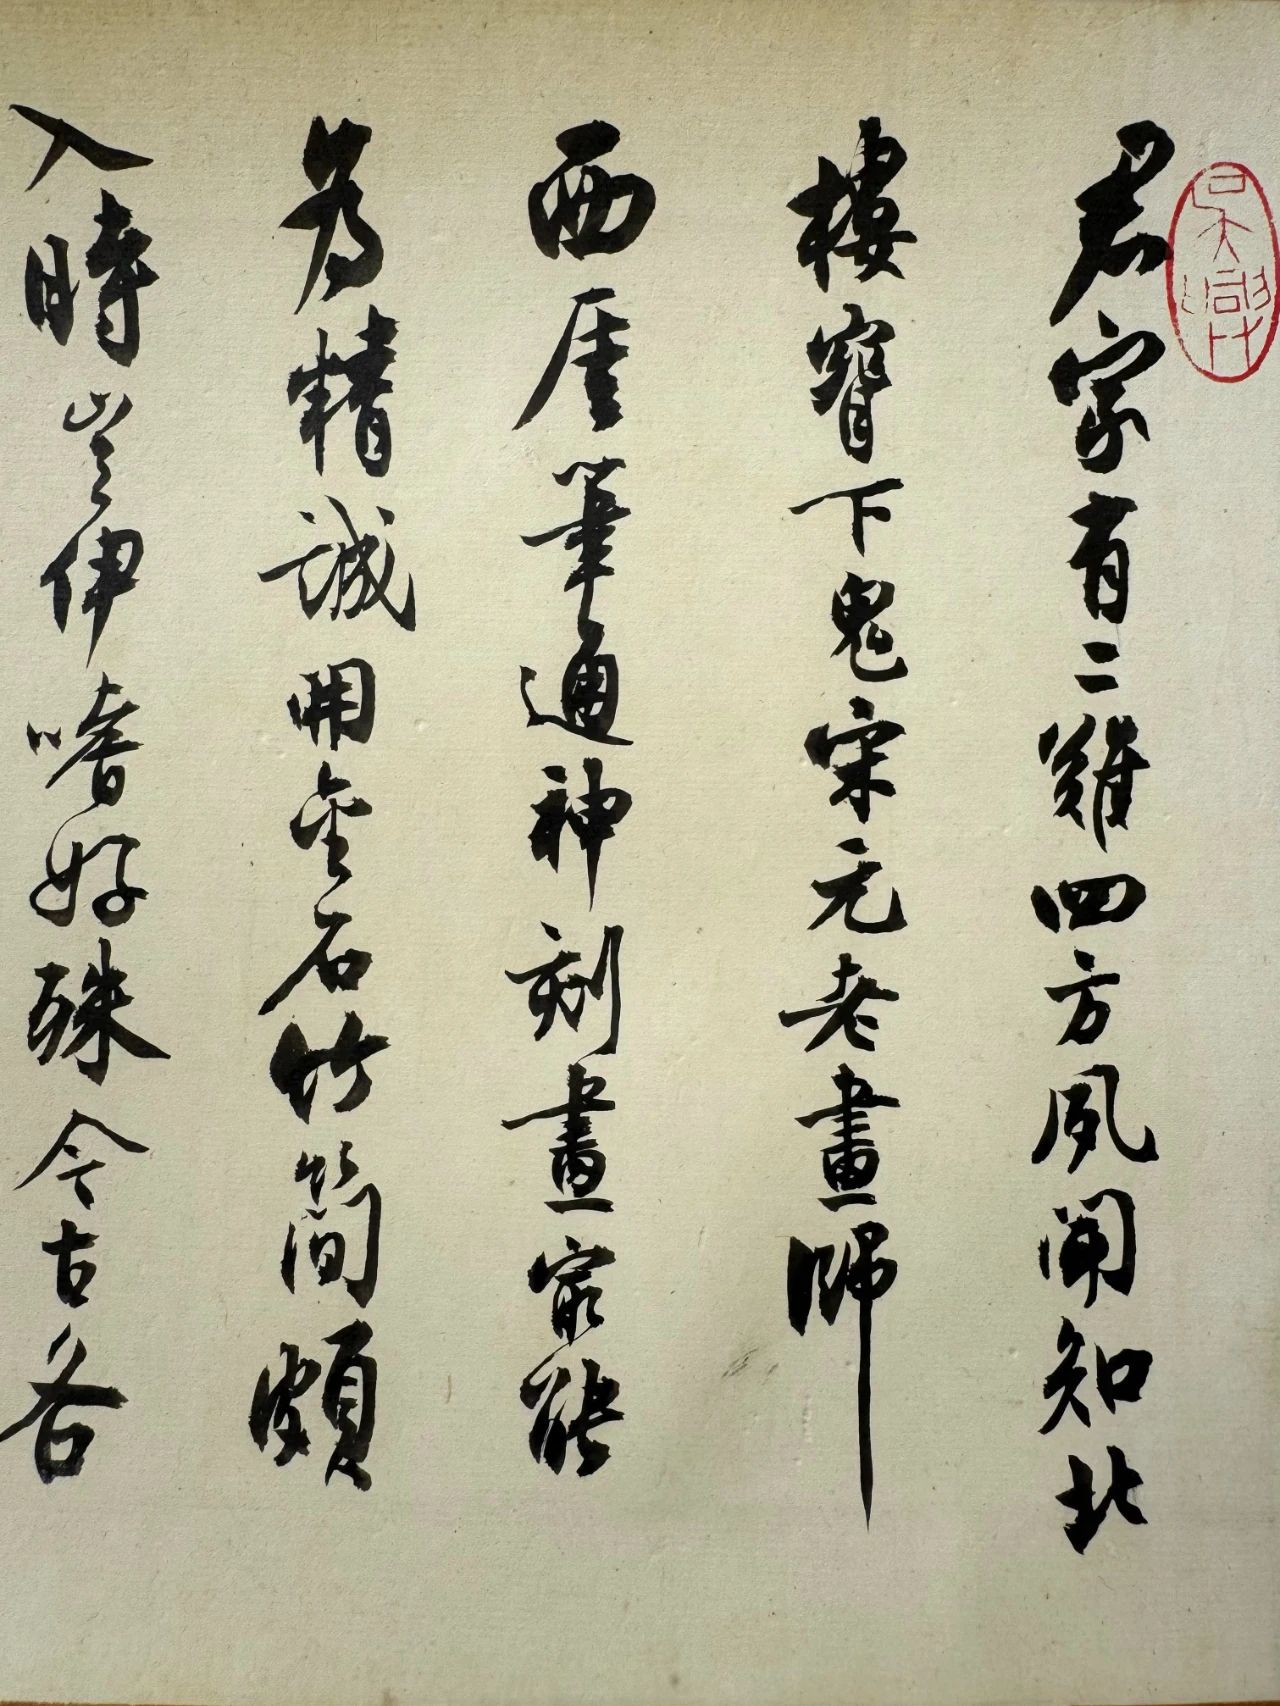 吳興
君家有二難四方夙聞知北
樓下鬼宋元老畫師
西厓筆通神刻畫最能
為精誠開金石竹簡頗
入時豈伊嗜好殊今古各